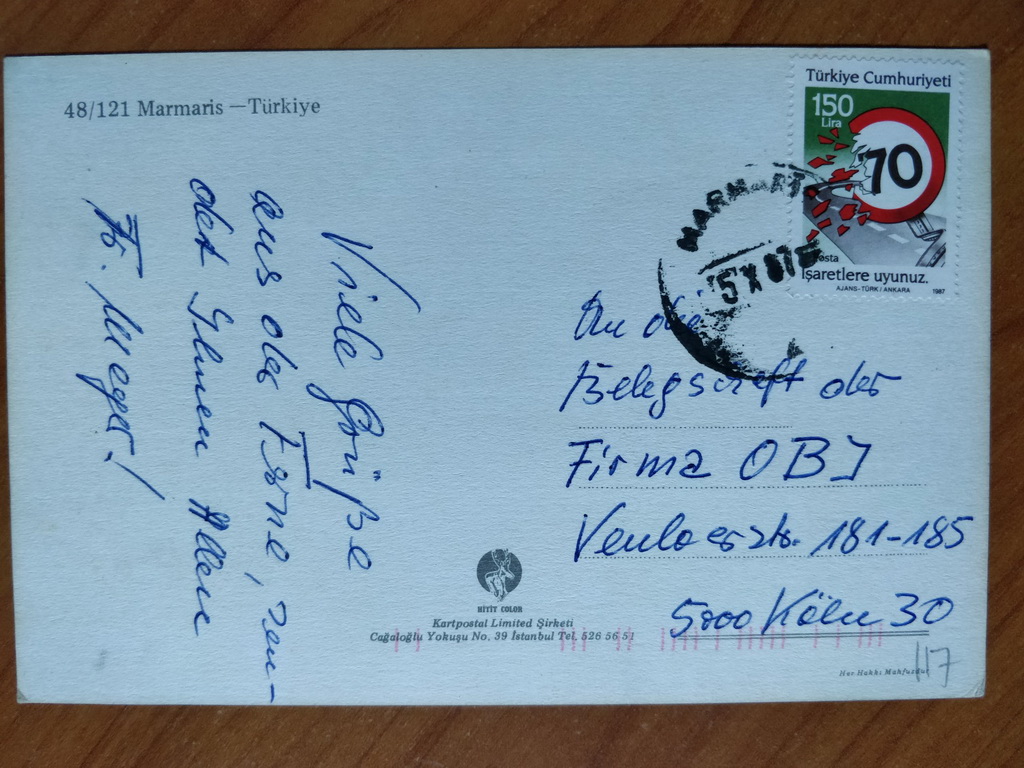 48/121 Marmaris —Türkiye
Türkiye Cumhuriyeti
150
Lira
70
Posta
İşaretlere uyunuz.
AJANS-TÜRK / ANKARA 1987
MARMARİS
5 X 87
Viele Grüße
aus der Ferne, sen-
det Ihnen Allen
Fr.
An die
Belegschaft der
Firma OBI
Venloerstr. 181-185
5000 Köln 30
HİTİT COLOR
Kartpostal Limited Şirketi
Cağaloğlu Yokuşu No. 39 İstanbul Tel. 526 56 51
Her Hakkı Mahfuzdur
117